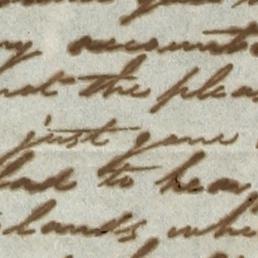 my accounts
that the pleas
just gone
lad to hear
lands whe